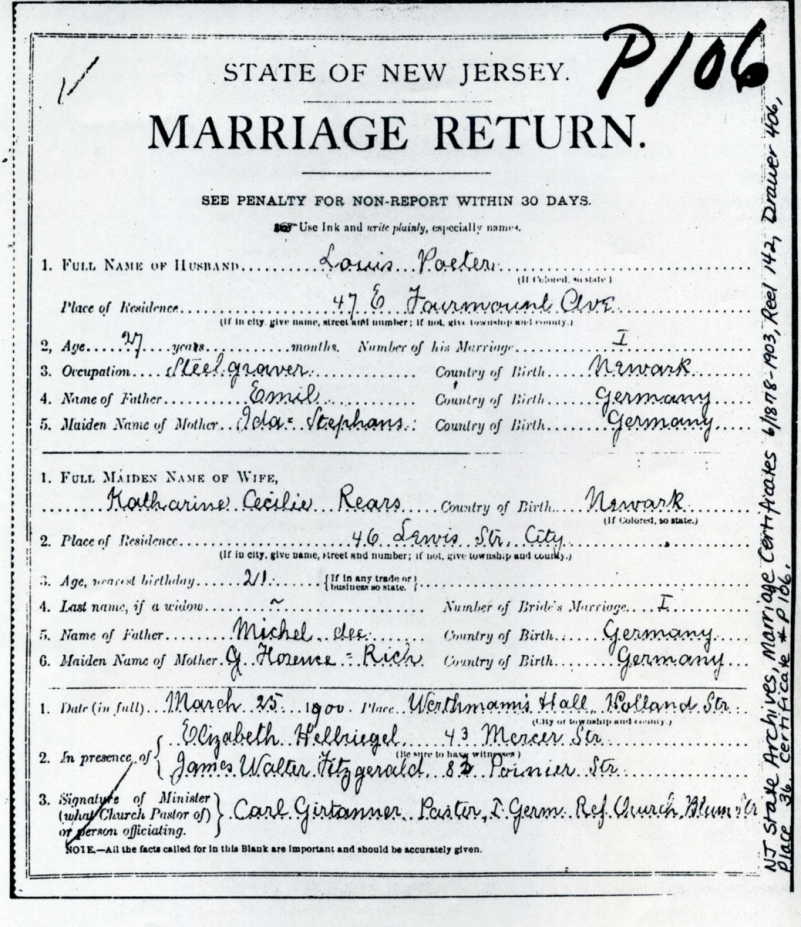 P106
STATE OF NEW JERSEY.
MARRIAGE RETURN.
SEE PENALTY FOR NON-REPORT WITHIN 30 DAYS.
Use Ink and write plainly, especially names.
1. FULL NAME OF HUSBAND Louis Poeter
(If Colored, so state)
Place of Residence 47 E Fairmount Ave
(If in city, give name, street and number; if not, give township and county.)
2, Age 27 years months. Number of his Marriage I
3. Occupation Steel graver Country of Birth Newark
4. Name of Father Emil Country of Birth Germany
5. Maiden Name of Mother Ida Stephans Country of Birth Germany
1. FULL MAIDEN NAME OF WIFE,
Katharine Cecilie Rears Country of Birth Newark
(If Colored, so state.)
2. Place of Residence 46 Lewis Str. City
(If in city, give name, street and number; if not, give township and county.)
3. Age, nearest birthday 21 {If in any trade or business so state.}
4. Last name, if a widow ~ Number of Bride's Marriage I
5. Name of Father Michel Country of Birth Germany
6. Maiden Name of Mother G Florence = Rich Country of Birth Germany
1. Date (in full) March 25 1900. Place Werthmann's Hall, Holland Str.
(City or township and county.)
2. In presence of { Elizabeth Helbriegel 43 Mercer Str.
(Be sure to have witnesses)
James Walter Fitzgerald, 82 Poinier Str.
3. Signature of Minister (what Church Pastor of) or person officiating. } Carl Girtanner Pastor, I. Germ. Ref. Church, Blum Str
NOTE.—All the facts called for in this Blank are important and should be accurately given.
NJ State Archives, Marriage Certificates 6/1878-1903, Reel 142, Drawer 406,
Place 36. Certificate # P106.